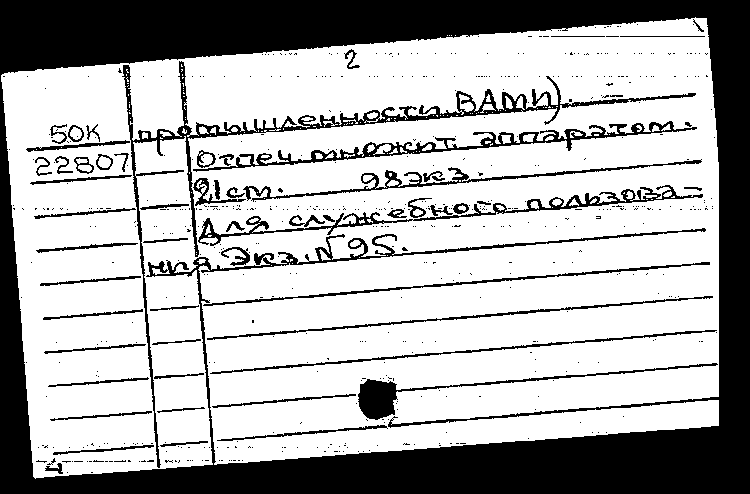 2
50К промышленности ВАМИ).
22807 Отпеч. множит. аппаратом.
21см. 98экз.
Для служебного пользова-
ния. Экз. N 95.